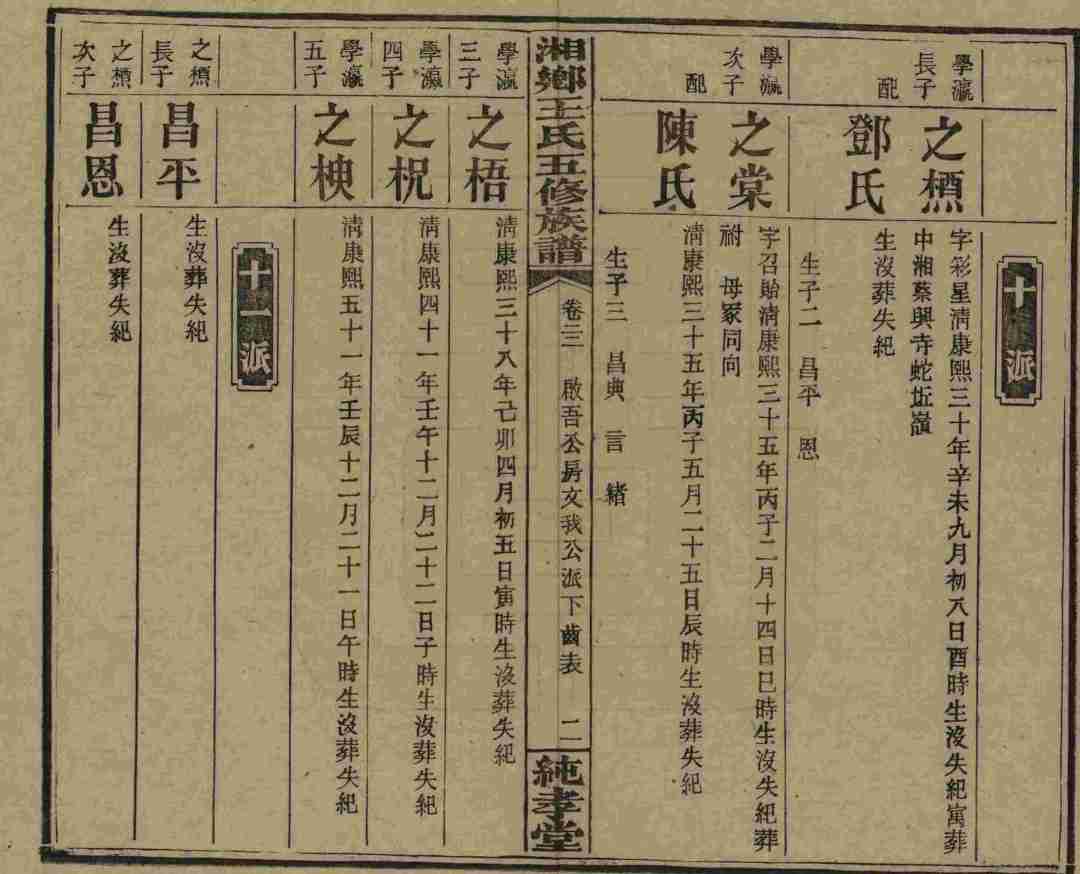 十派
學瀛
長子
之槱
字彩星淸康熙三十年辛未九月初八日酉時生沒失紀寓葬
中湘蔡興寺蛇坵嶺
配
鄧氏
生沒葬失紀
生子二　昌平　恩
學瀛
次子
之棠
字召貽淸康熙三十五年丙子二月十四日巳時生沒失紀葬
祔　母冢同向
配
陳氏
淸康熙三十五年丙子五月二十五日辰時生沒葬失紀
生子三　昌典　言　緒
湘鄉王氏五修族譜
卷三三　啟吾公房文我公派下齒表　二
純孝堂
學瀛
三子
之梧
淸康熙三十八年己卯四月初五日寅時生沒葬失紀
學瀛
四子
之柷
淸康熙四十一年壬午十二月二十二日子時生沒葬失紀
學瀛
五子
之楧
淸康熙五十一年壬辰十二月二十一日午時生沒葬失紀
十一派
之槱
長子
昌平
生沒葬失紀
之槱
次子
昌恩
生沒葬失紀